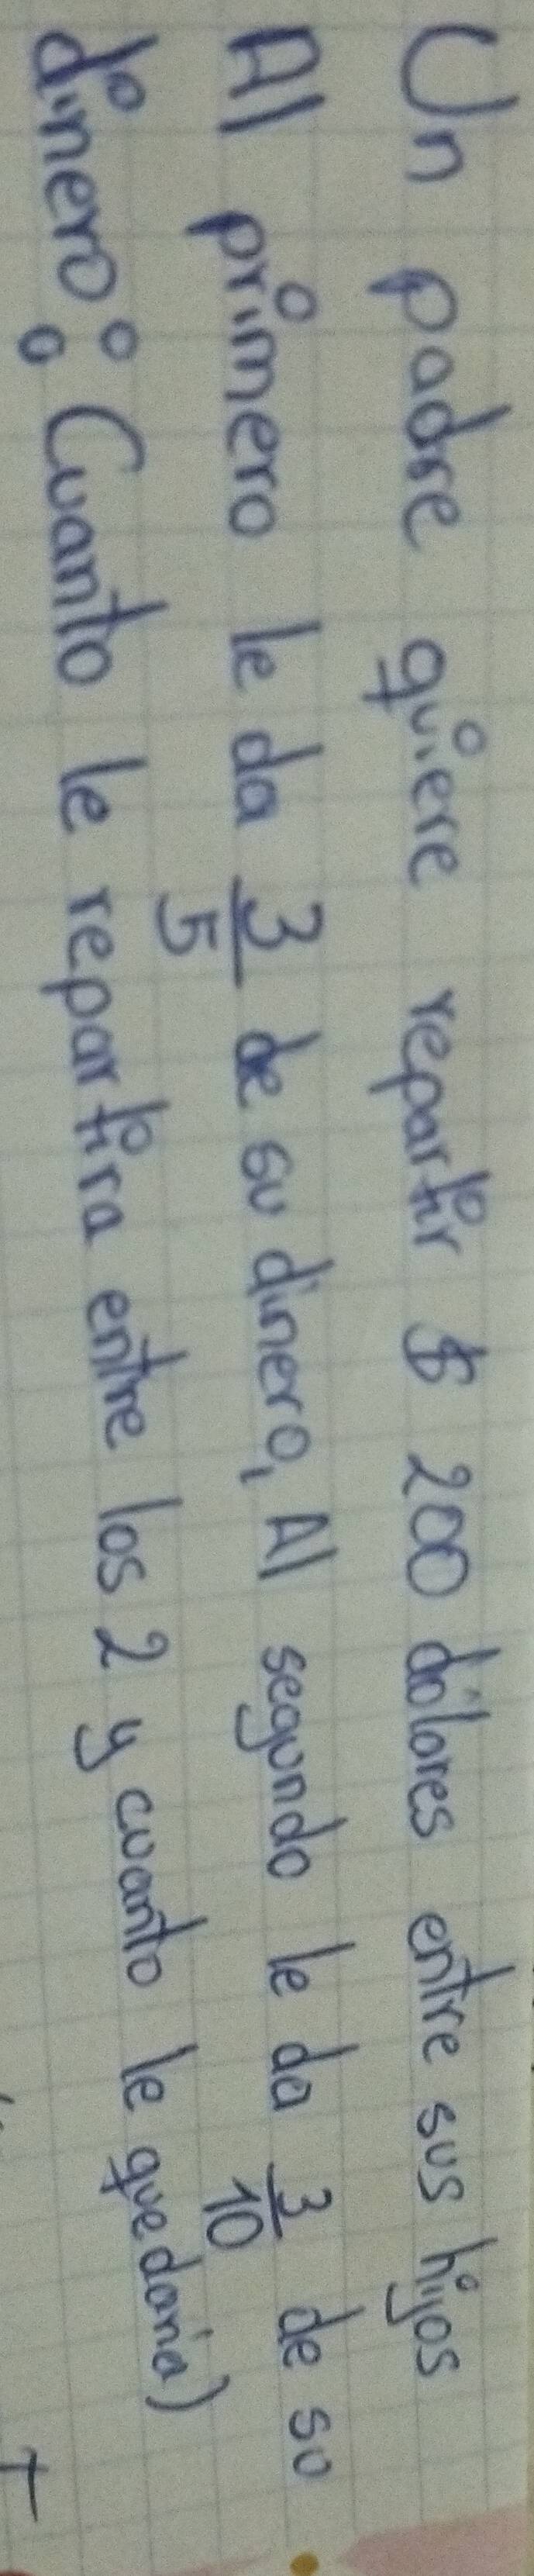 Un padre quiere repartir $ 200 dólares entre sus hijos
Al primero le da 3/5 de su dinero, Al segundo le da 3/10 de su
dinero: Cuanto le repartira entre los 2 y cuanto le quedaría)